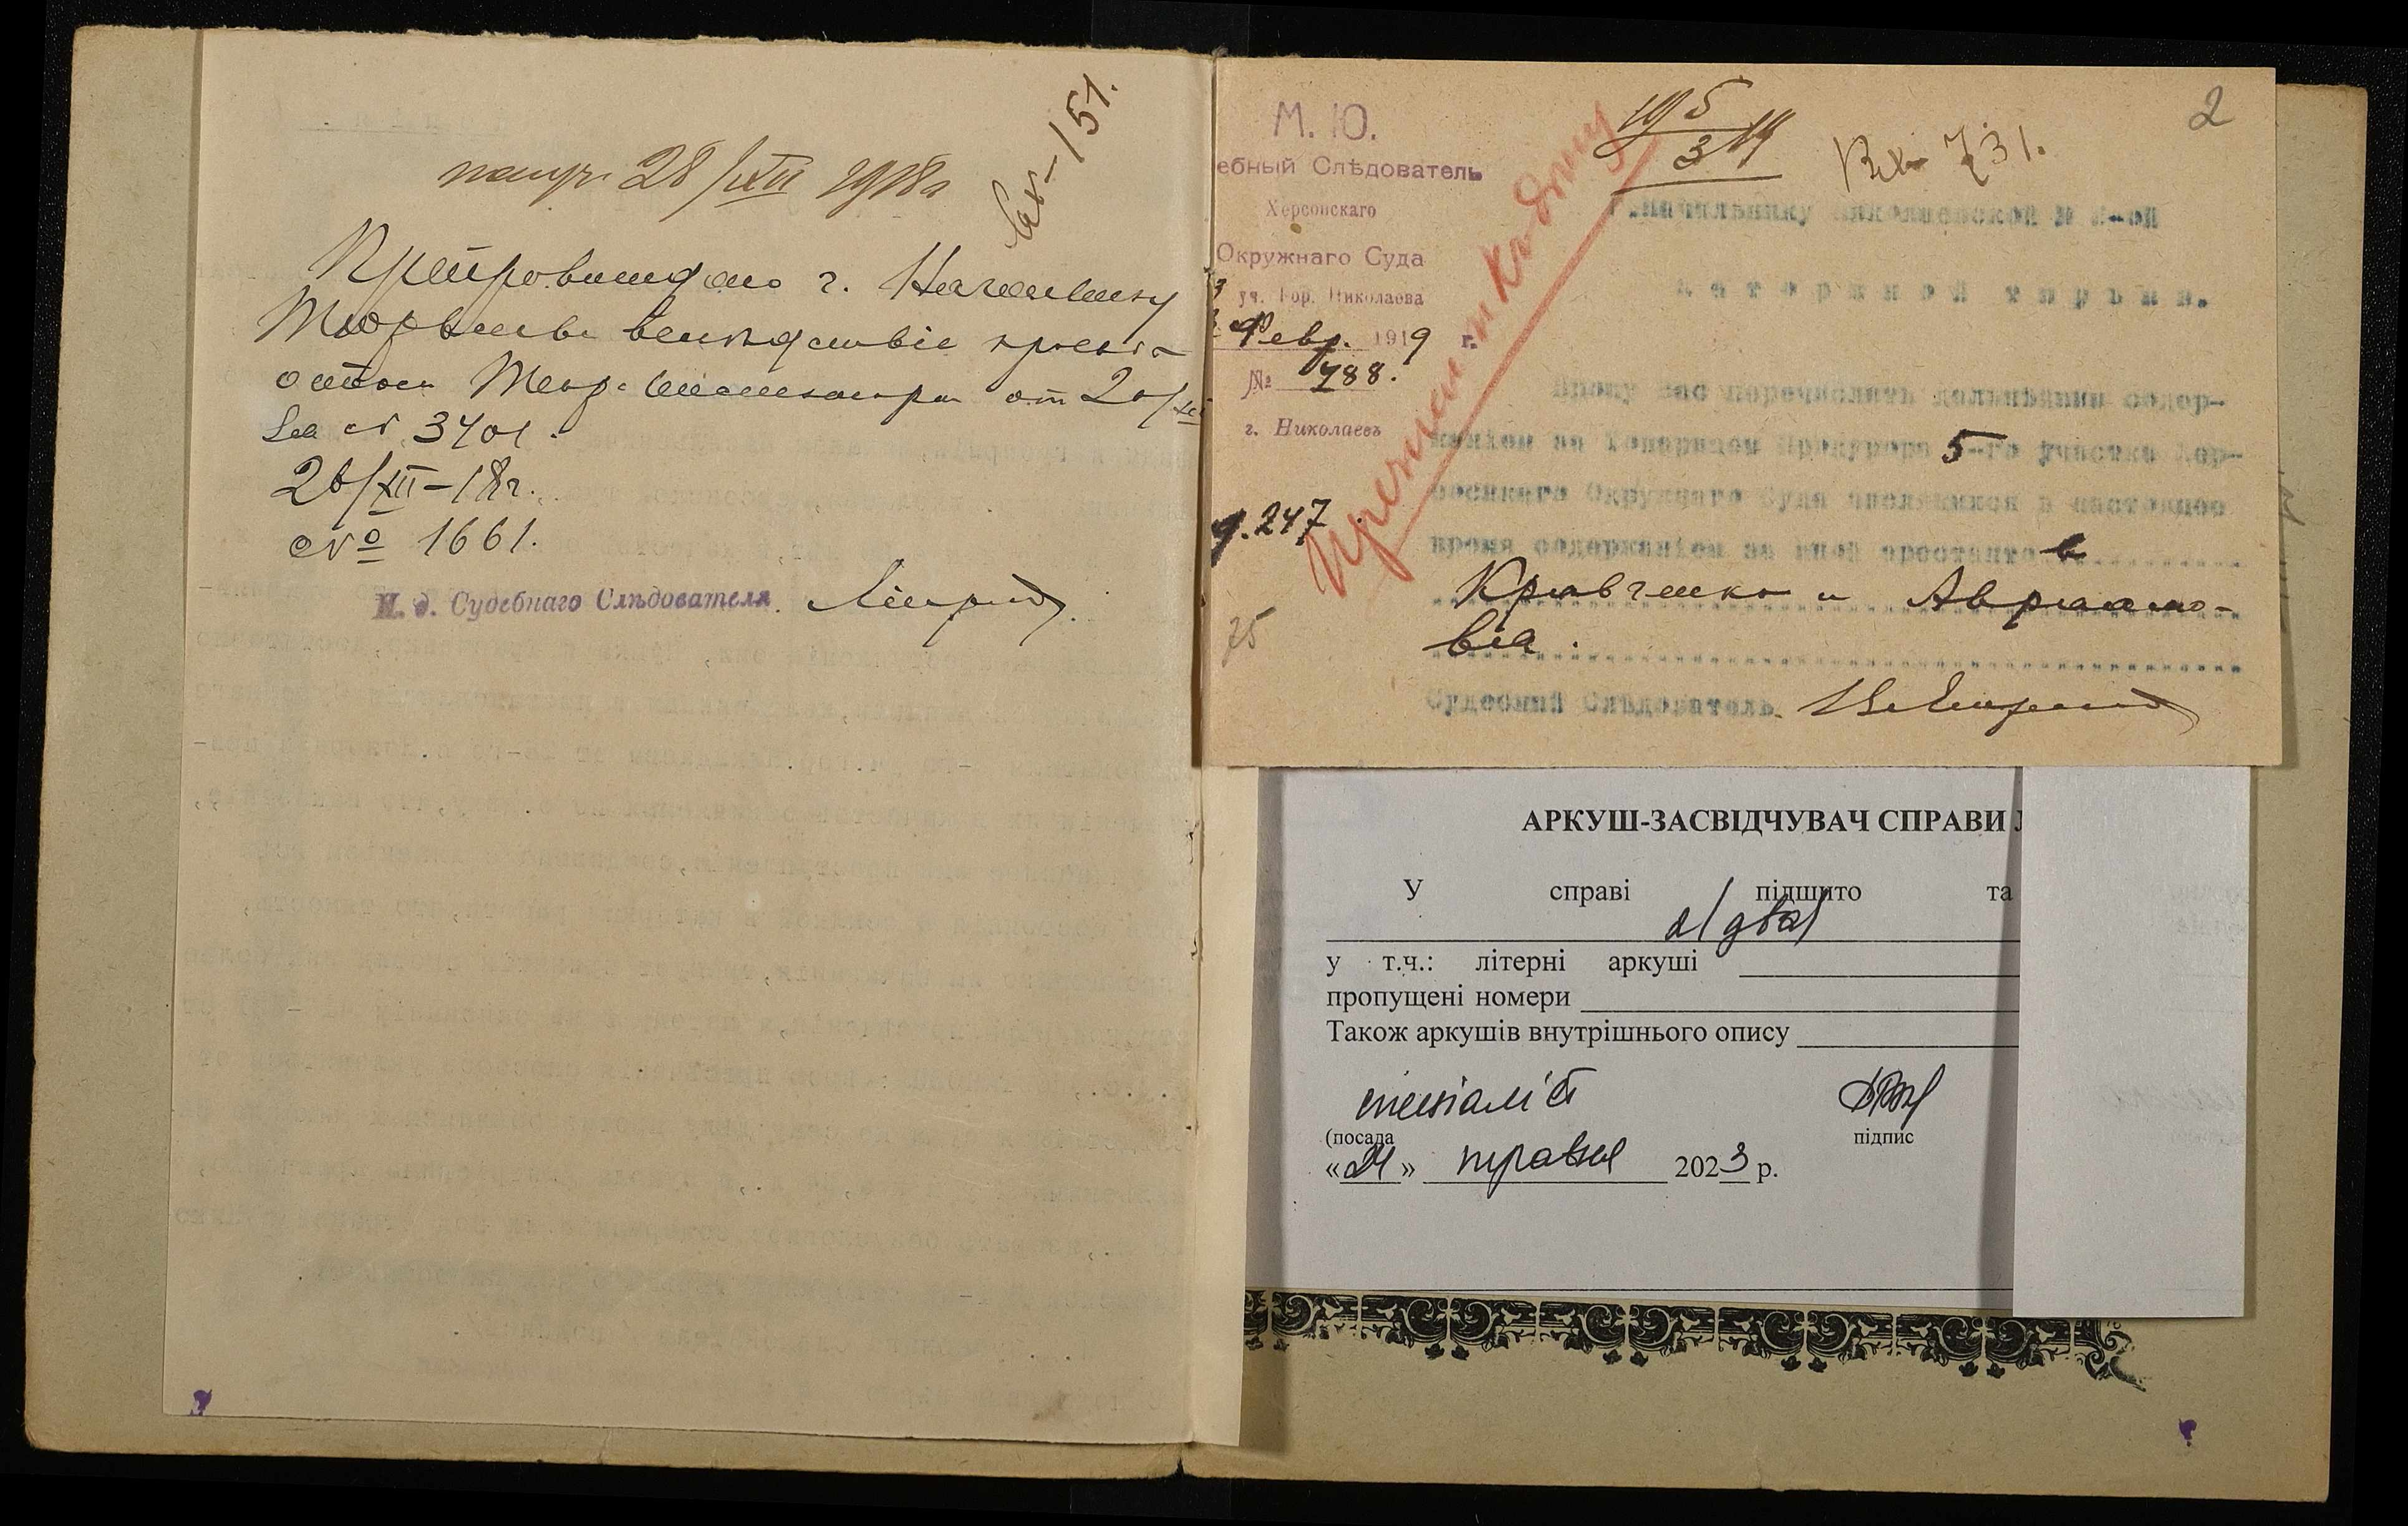 получ. 28/XII 1918 г.
151.
Препровождаю г. Начальнику
Тюрьмы вследствие
от 20/XII
за № 3401.
26/XII–18 г.
№ 1661.
И. д. Судебнаго Слѣдователя.
2
М. Ю.
ебный Слѣдователь
Херсонскаго
Окружнаго Суда
3 уч. Гор. Николаева
Февр. 1919 г.
№ 788.
г. Николаевъ
д. 247
75
19 5/3 19
Вх 731.
Приобщить к делу
Начальнику Николаевской
каторжной тюрьмы.
Прошу вас перечислить дальнѣйшим содер-
жаніем за Товарищем Прокурора 5-го участка Хер-
сонскаго Окружнаго Суда числящихся в настоящее
время содержаніем за мной арестантов
Кравченко и Авраамо-
ва.
Судебный Слѣдователь
АРКУШ-ЗАСВІДЧУВАЧ СПРАВИ
У справі підшито та
2/два/
у т.ч.: літерні аркуші
пропущені номери
Також аркушів внутрішнього опису
спеціаліст
(посада підпис
«24» травня 2023 р.